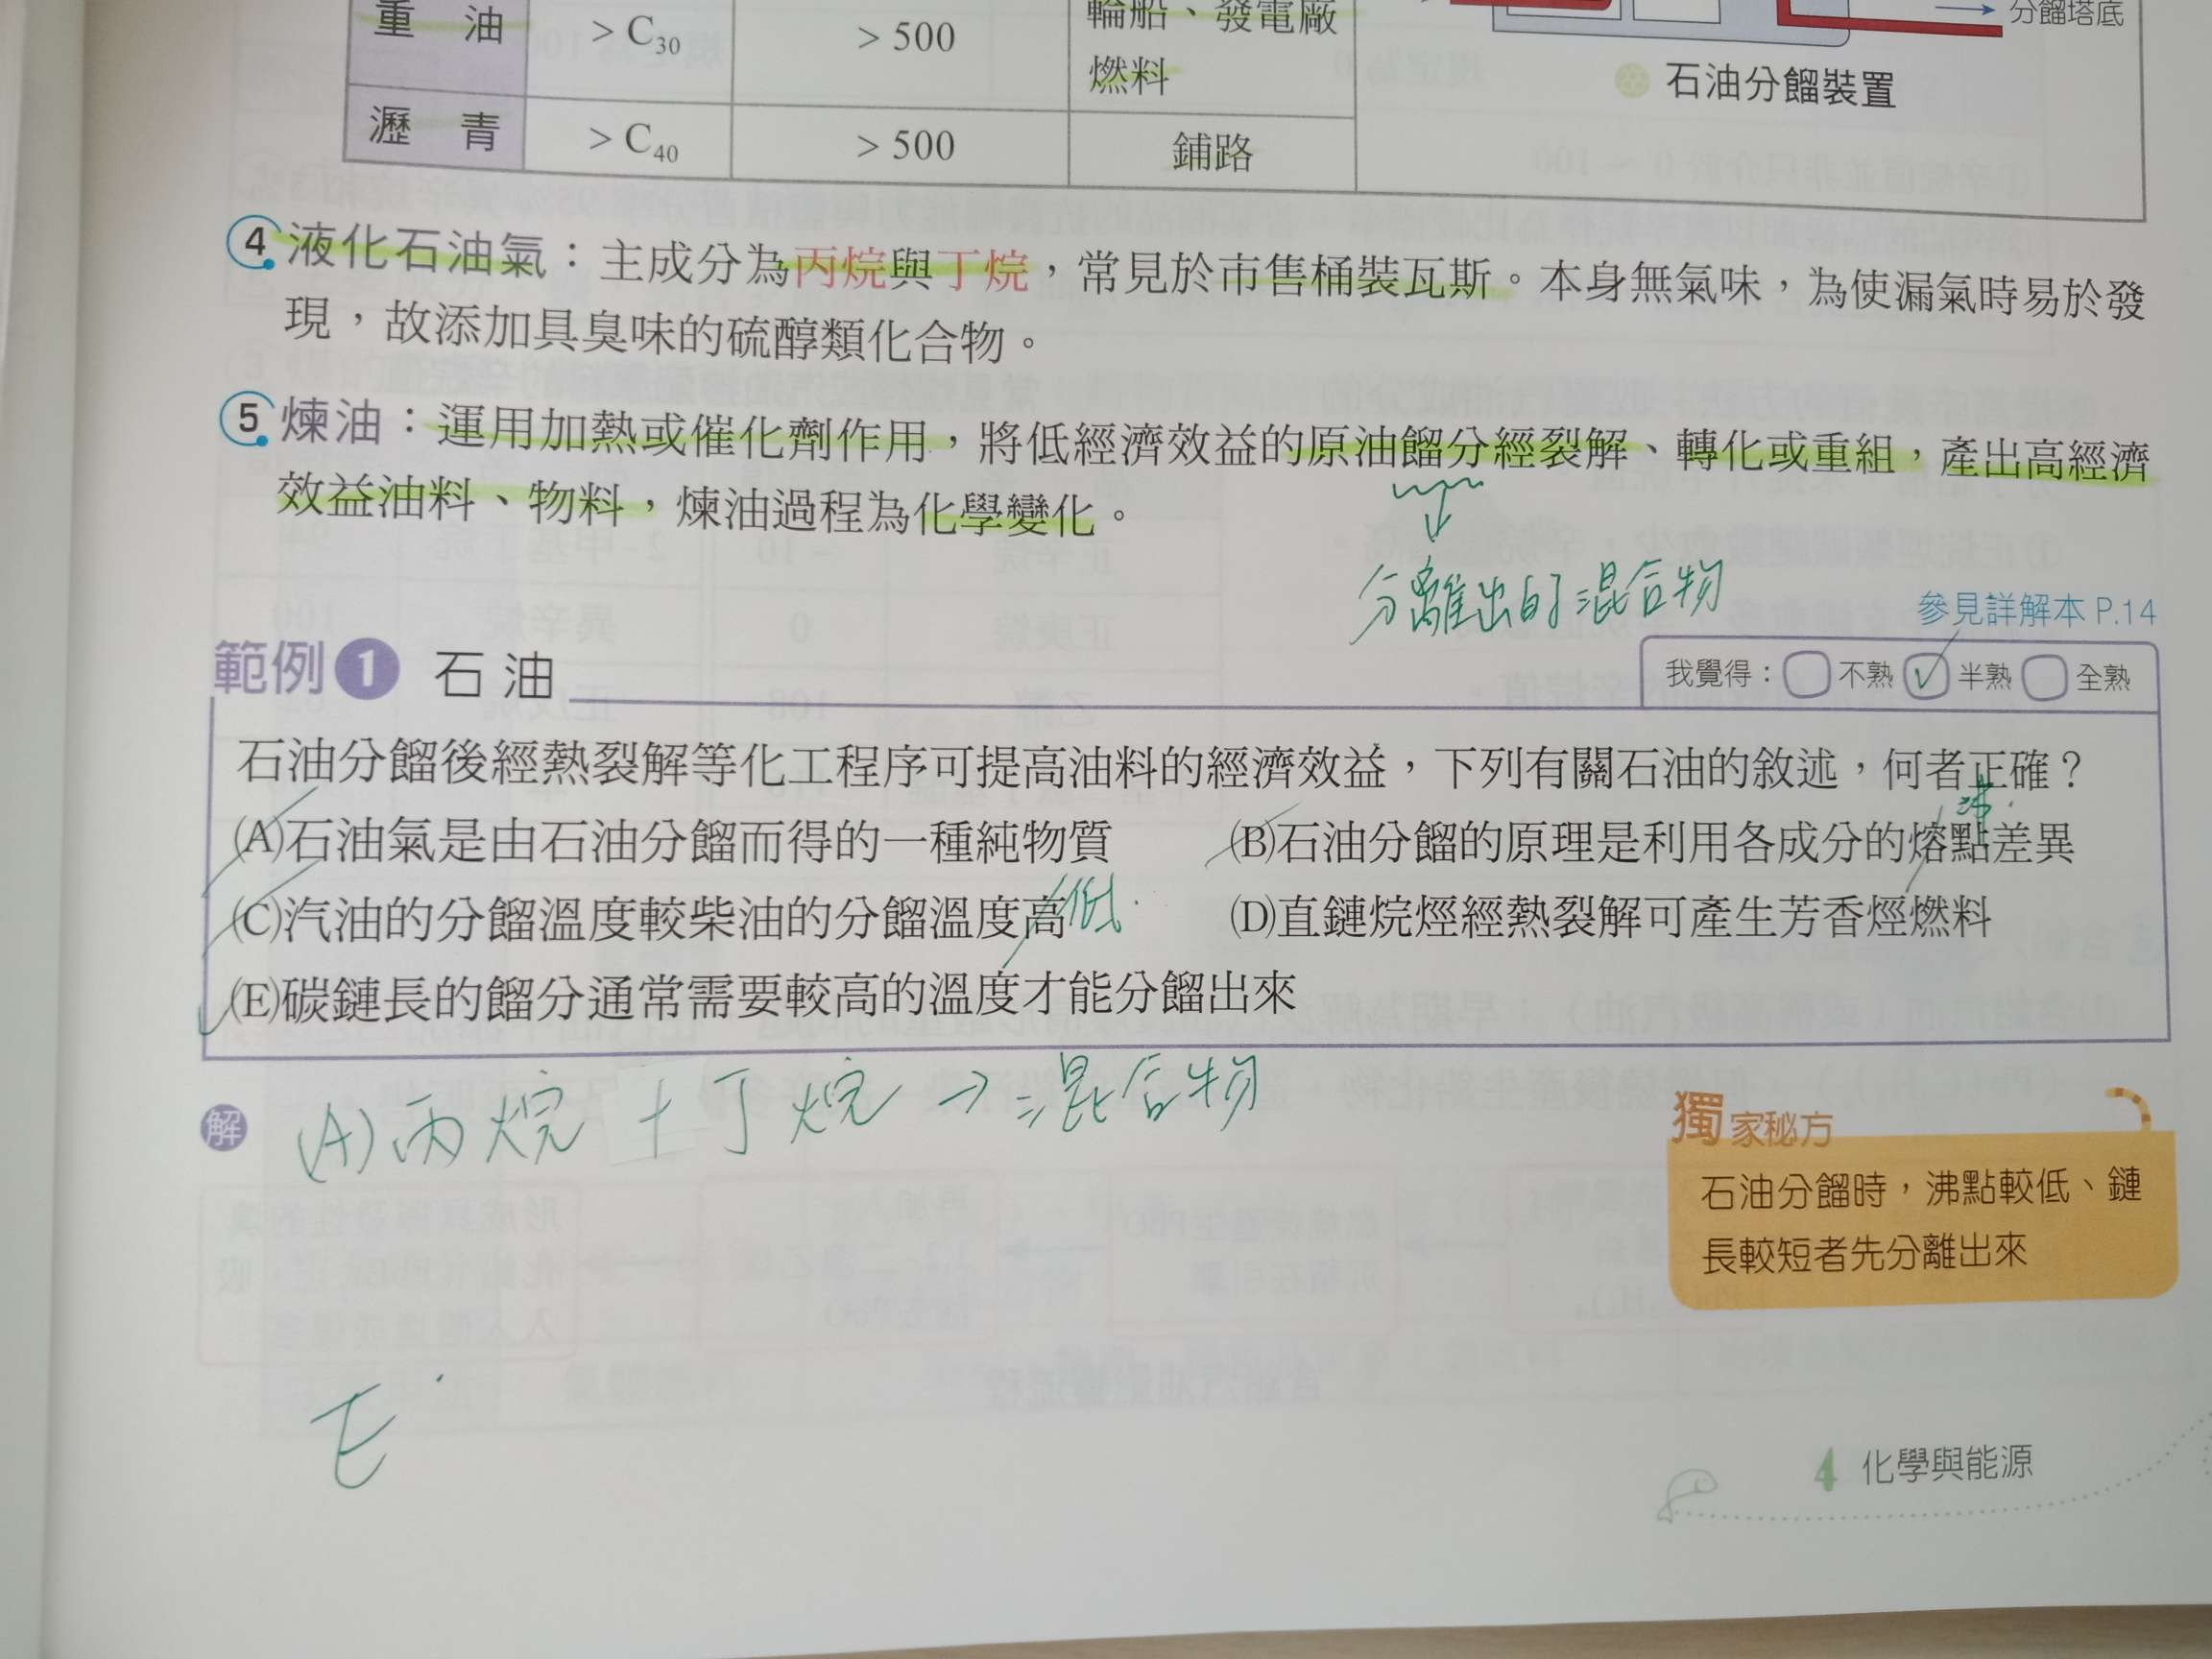 重 油
> C30
> 500
輪船、發電廠
燃料
分餾塔底
石油分餾裝置
瀝 青
> C40
> 500
鋪路
④液化石油氣：主成分為丙烷與丁烷，常見於市售桶裝瓦斯。本身無氣味，為使漏氣時易於發
現，故添加具臭味的硫醇類化合物。
⑤煉油：運用加熱或催化劑作用，將低經濟效益的原油餾分經裂解、轉化或重組，產出高經濟
效益油料、物料，煉油過程為化學變化。
分離出的混合物
參見詳解本 P.14
範例1 石油
我覺得：不熟 ✓半熟 全熟
石油分餾後經熱裂解等化工程序可提高油料的經濟效益，下列有關石油的敘述，何者正確？
沸
(A)石油氣是由石油分餾而得的一種純物質 (B)石油分餾的原理是利用各成分的熔點差異
(C)汽油的分餾溫度較柴油的分餾溫度高 低 (D)直鏈烷烴經熱裂解可產生芳香烴燃料
(E)碳鏈長的餾分通常需要較高的溫度才能分餾出來
解 (A)丙烷+丁烷→混合物
獨家秘方
石油分餾時，沸點較低、鏈
長較短者先分離出來
E
4 化學與能源